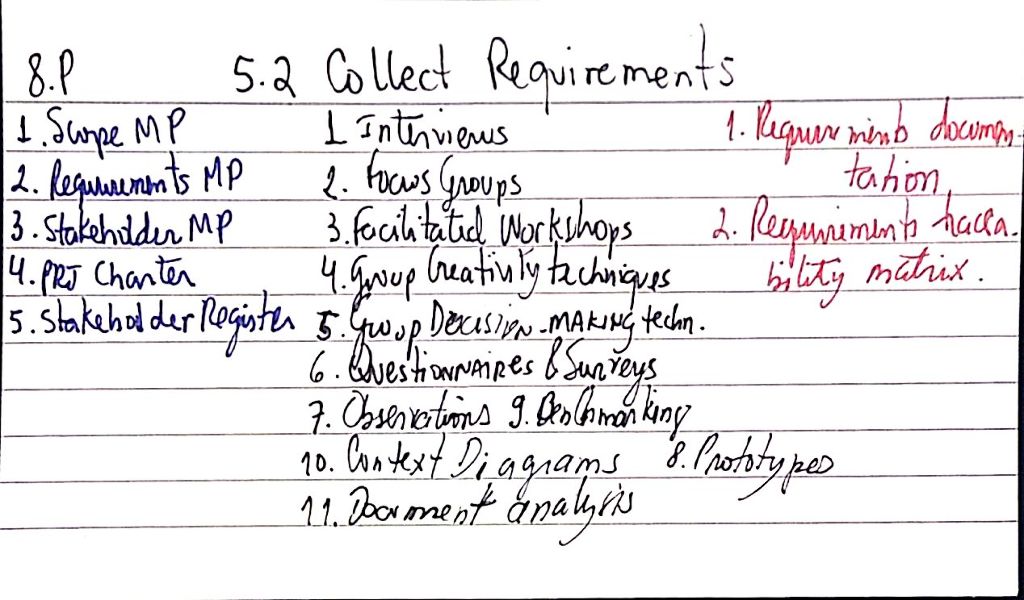 8.P 5.2 Collect Requirements
1. Scope MP
2. Requirements MP
3. Stakeholder MP
4. PRJ Charter
5. Stakeholder Register
1 Interviews
2. Focus Groups
3. Facilitated Workshops
4. Group Creativity techniques
5. Group DECISION-MAKING techn.
6. Questionnaires & Surveys
7. Observations 9. Benchmarking
10. Context Diagrams 8. Prototypes
11. Document analysis
1. Requirements documen-
tation
2. Requirements tracea-
bility matrix.